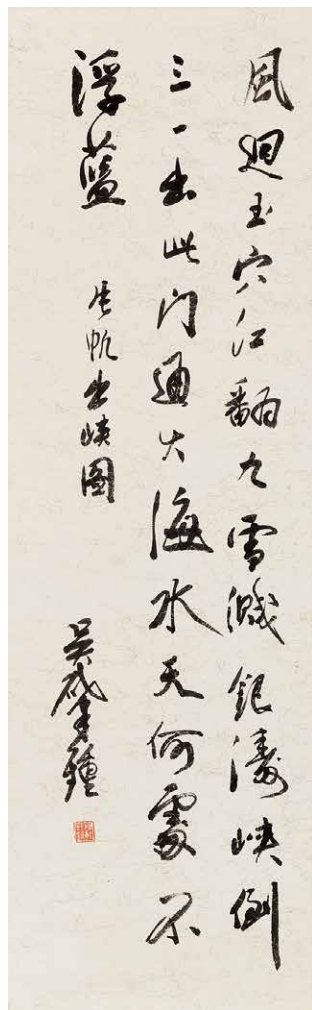 風迴玉穴江翻九雪濺銀濤峽倒
三一出此門通大海水天何處不
浮藍
張帆出峽圖
吳肇鍾